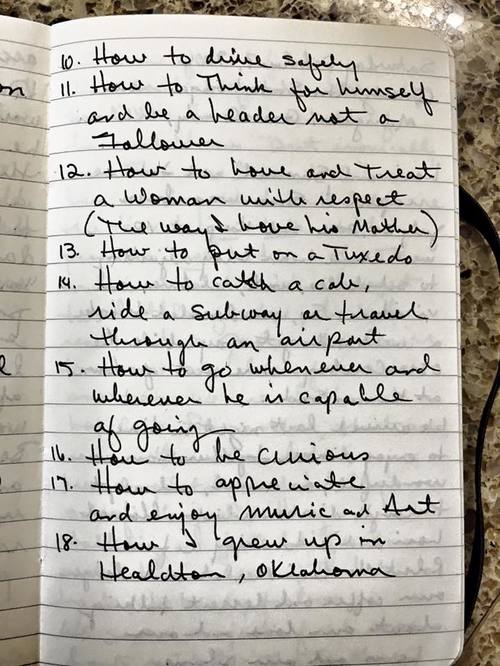 on
10. How to drive safely
11. How to Think for himself
and be a Leader not a
Follower
12. How to Love and Treat
a Woman with respect
(The way I Love his Mother)
13. How to put on a Tuxedo
14. How to catch a cab,
ride a subway or travel
through an airport
15. How to go whenever and
wherever he is capable
of going
16. How to be curious
17. How to appreciate
and enjoy music ad Art
18. How I grew up in
Healdton, Oklahoma